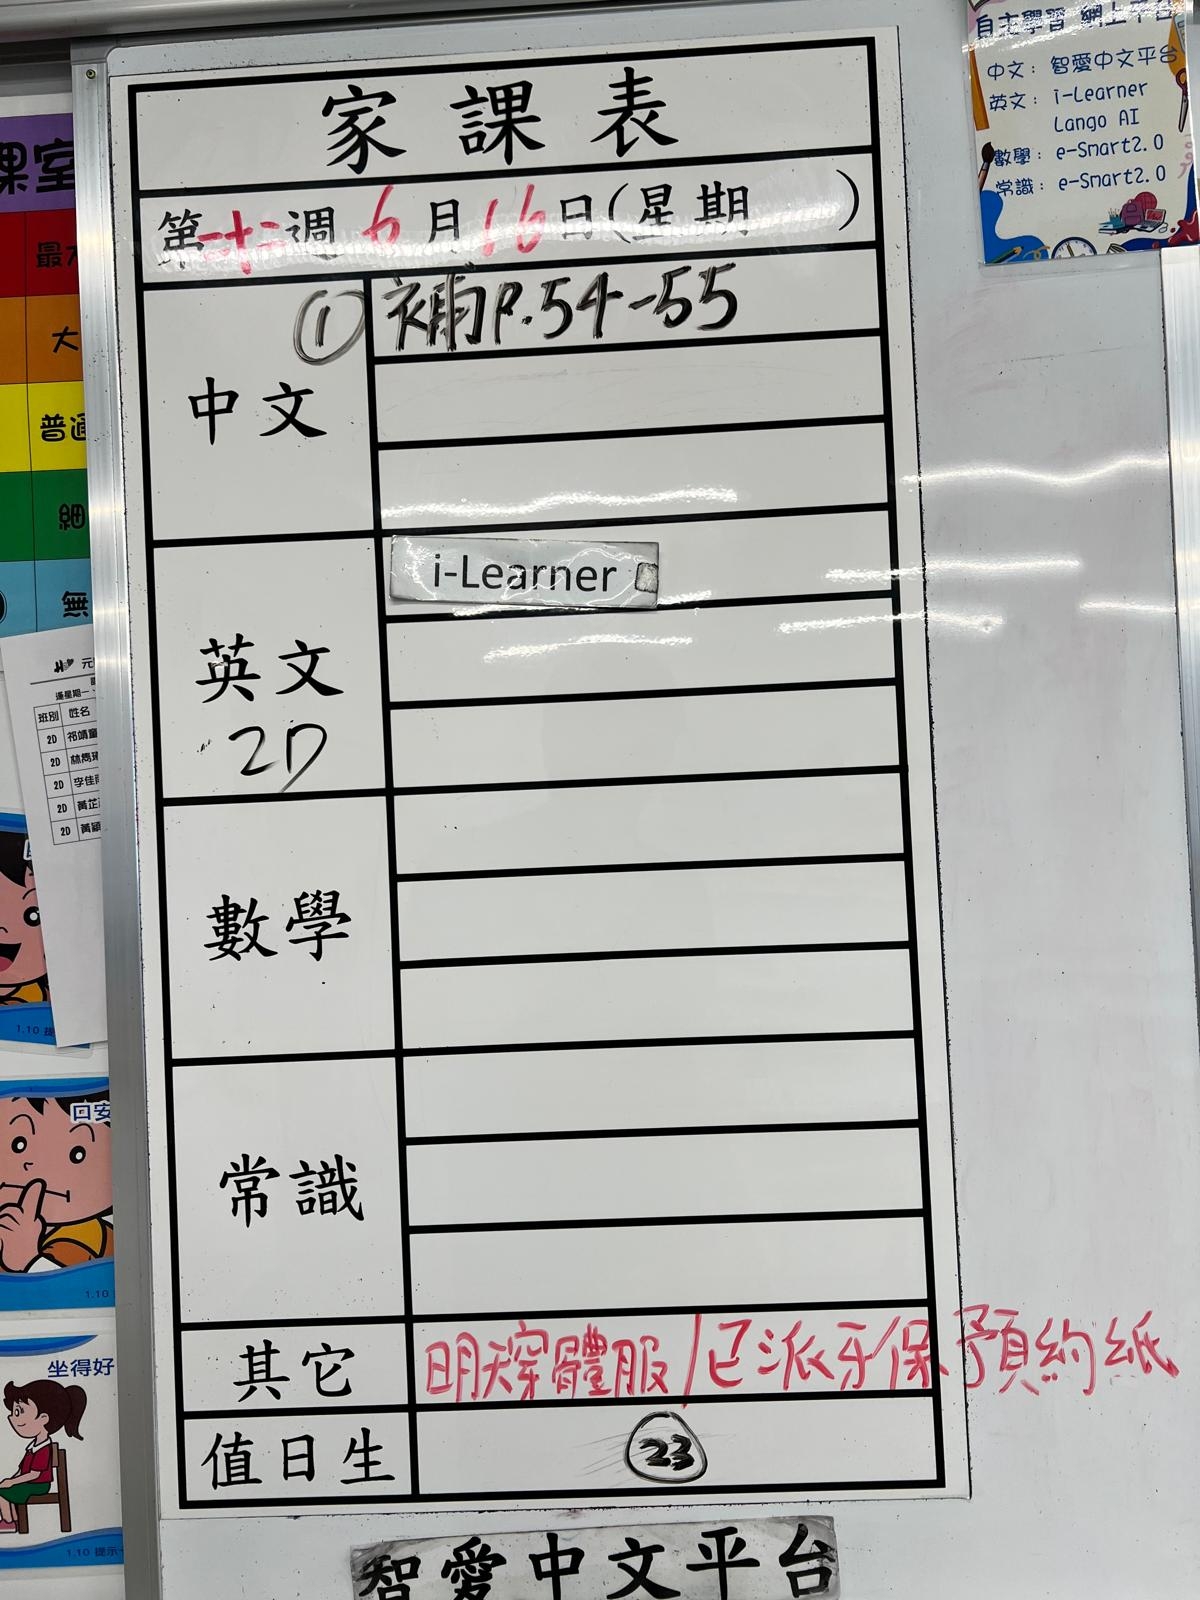 家課表
第十二週 6月16日(星期 )
中文
① 補P.54-55
英文
2D
i-Learner
數學
常識
其它
明天穿體服/已派牙保預約紙
值日生
23
智愛中文平台
自主學習 網上平台
中文: 智愛中文平台
英文: i-Learner
Lango AI
數學: e-Smart2.0
常識: e-Smart2.0
課室
最大
大
普通
細
無
元
逢星期一、
班別 姓名
2D 祁靖童
2D 林雋
2D 李佳
2D 黃芷
2D 黃穎
1.10 提
口安
1.10
坐得好
1.10 提示